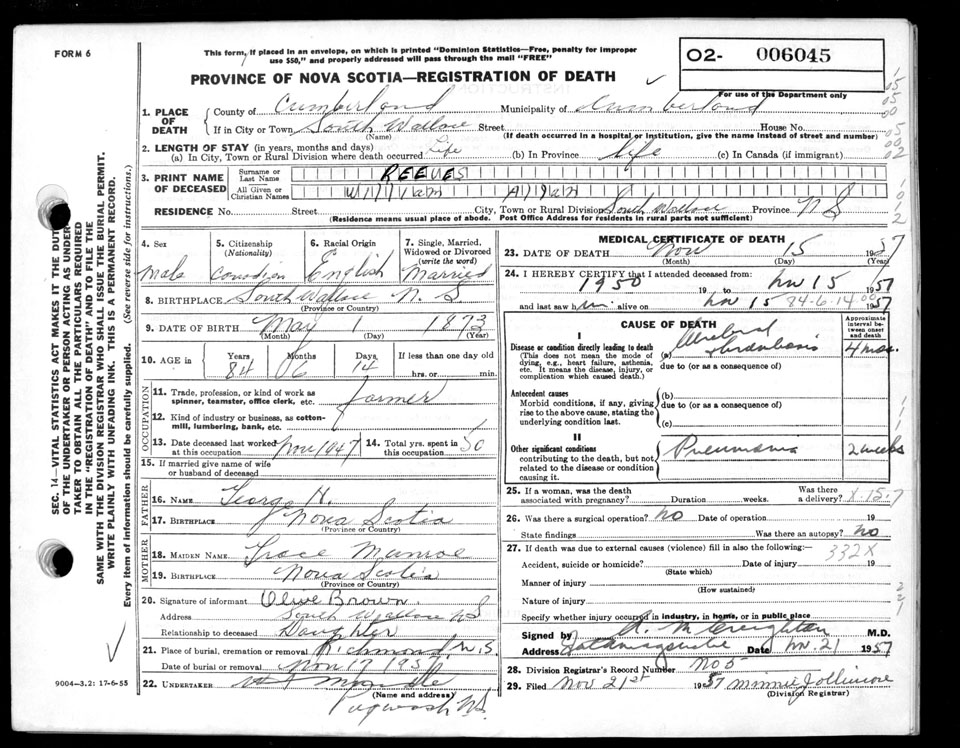 FORM 6
This form, if placed in an envelope, on which is printed "Dominion Statistics—Free, penalty for improper
use $50," and properly addressed will pass through the mail "FREE"
PROVINCE OF NOVA SCOTIA—REGISTRATION OF DEATH
02- 006045
For use of the Department only
1. PLACE OF DEATH
County of Cumberland Municipality of Cumberland
If in City or Town South Wallace Street House No.
(Name) (If death occurred in a hospital or institution, give the name instead of street and number)
2. LENGTH OF STAY (in years, months and days)
(a) In City, Town or Rural Division where death occurred Life (b) In Province Life (c) In Canada (if immigrant)
3. PRINT NAME OF DECEASED
Surname or Last Name REEVES
All Given or Christian Names William
RESIDENCE No. Street City, Town or Rural Division South Wallace Province N S
(Residence means usual place of abode. Post Office Address for residents in rural parts not sufficient)
4. Sex Male
5. Citizenship (Nationality) Canadian
6. Racial Origin English
7. Single, Married, Widowed or Divorced (write the word) Married
8. BIRTHPLACE South Wallace N. S
(Province or Country)
9. DATE OF BIRTH May 1 1873
(Month) (Day) (Year)
10. AGE in Years 84 Months 6 Days 14 If less than one day old hrs. or min.
OCCUPATION
11. Trade, profession, or kind of work as spinner, teamster, office clerk, etc. farmer
12. Kind of industry or business, as cotton-mill, lumbering, bank, etc.
13. Date deceased last worked at this occupation 1947 14. Total yrs. spent in this occupation 50
15. If married give name of wife or husband of deceased
FATHER
16. NAME George H.
17. BIRTHPLACE Nova Scotia
(Province or Country)
MOTHER
18. MAIDEN NAME Grace Munroe
19. BIRTHPLACE Nova Scotia
(Province or Country)
20. Signature of informant Olive Brown
Address South Wallace NS
Relationship to deceased Daughter
21. Place of burial, cremation or removal Richmond, N.S.
Date of burial or removal Nov 17 1957
22. UNDERTAKER
(Name and address)
Pugwash NS.
MEDICAL CERTIFICATE OF DEATH
23. DATE OF DEATH Nov 15 1957
(Month) (Day) (Year)
24. I HEREBY CERTIFY that I attended deceased from:
1950 19 to Nov 15 1957
and last saw him alive on Nov 15 84-6-14 00 1957
CAUSE OF DEATH
Approximate interval between onset and death
I
Disease or condition directly leading to death
(This does not mean the mode of dying, e.g., heart failure, asthenia, etc. It means the disease, injury, or complication which caused death.)
(a) Cerebral thrombosis 4 mos.
due to (or as a consequence of)
Antecedent causes
Morbid conditions, if any, giving rise to the above cause, stating the underlying condition last.
(b)
due to (or as a consequence of)
(c)
II
Other significant conditions
contributing to the death, but not related to the disease or condition causing it.
Pneumonia 2 weeks
25. If a woman, was the death associated with pregnancy? Duration weeks. Was there a delivery? X-15-7
26. Was there a surgical operation? No Date of operation 19
State findings Was there an autopsy? no
27. If death was due to external causes (violence) fill in also the following:—
332X
Accident, suicide or homicide? Date of injury 19
(State which)
Manner of injury
(How sustained)
Nature of injury
Specify whether injury occurred in industry, in home, or in public place
Signed by Creighton M.D.
Address Tatamagouche Date Nov. 21 1957
28. Division Registrar's Record Number No 5
29. Filed Nov 21st 1957 Minnie Jollimore
(Division Registrar)
SEC. 14—VITAL STATISTICS ACT MAKES IT THE DUTY
OF THE UNDERTAKER OR PERSON ACTING AS UNDER-
TAKER TO OBTAIN ALL THE PARTICULARS REQUIRED
IN THE "REGISTRATION OF DEATH" AND TO FILE THE
SAME WITH THE DIVISION REGISTRAR WHO SHALL ISSUE THE BURIAL PERMIT.
WRITE PLAINLY WITH UNFADING INK. THIS IS A PERMANENT RECORD.
Every item of information should be carefully supplied. (See reverse side for instructions.)
9004-3.2: 17-6-55